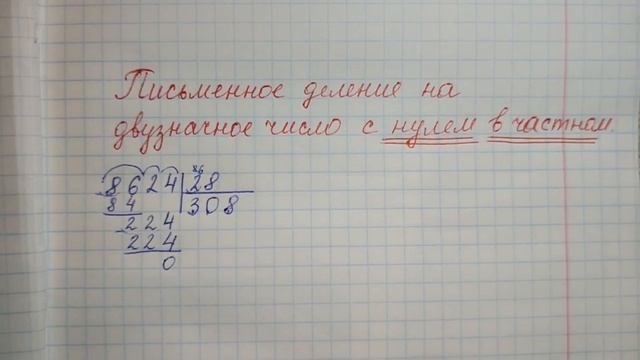 Письменное деление на
двузначное число с нулем в частном.
8624 28
84 308
224
224
0